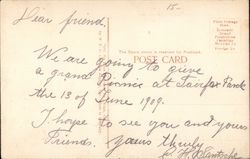 15.
Dear friend.
The Space above is reserved for Postmark.
POST CARD
We are going to give
a grand Picnic at Fairfax Park
the 13 of June 1909.
I hope to see you and yours
Friends. yours truly